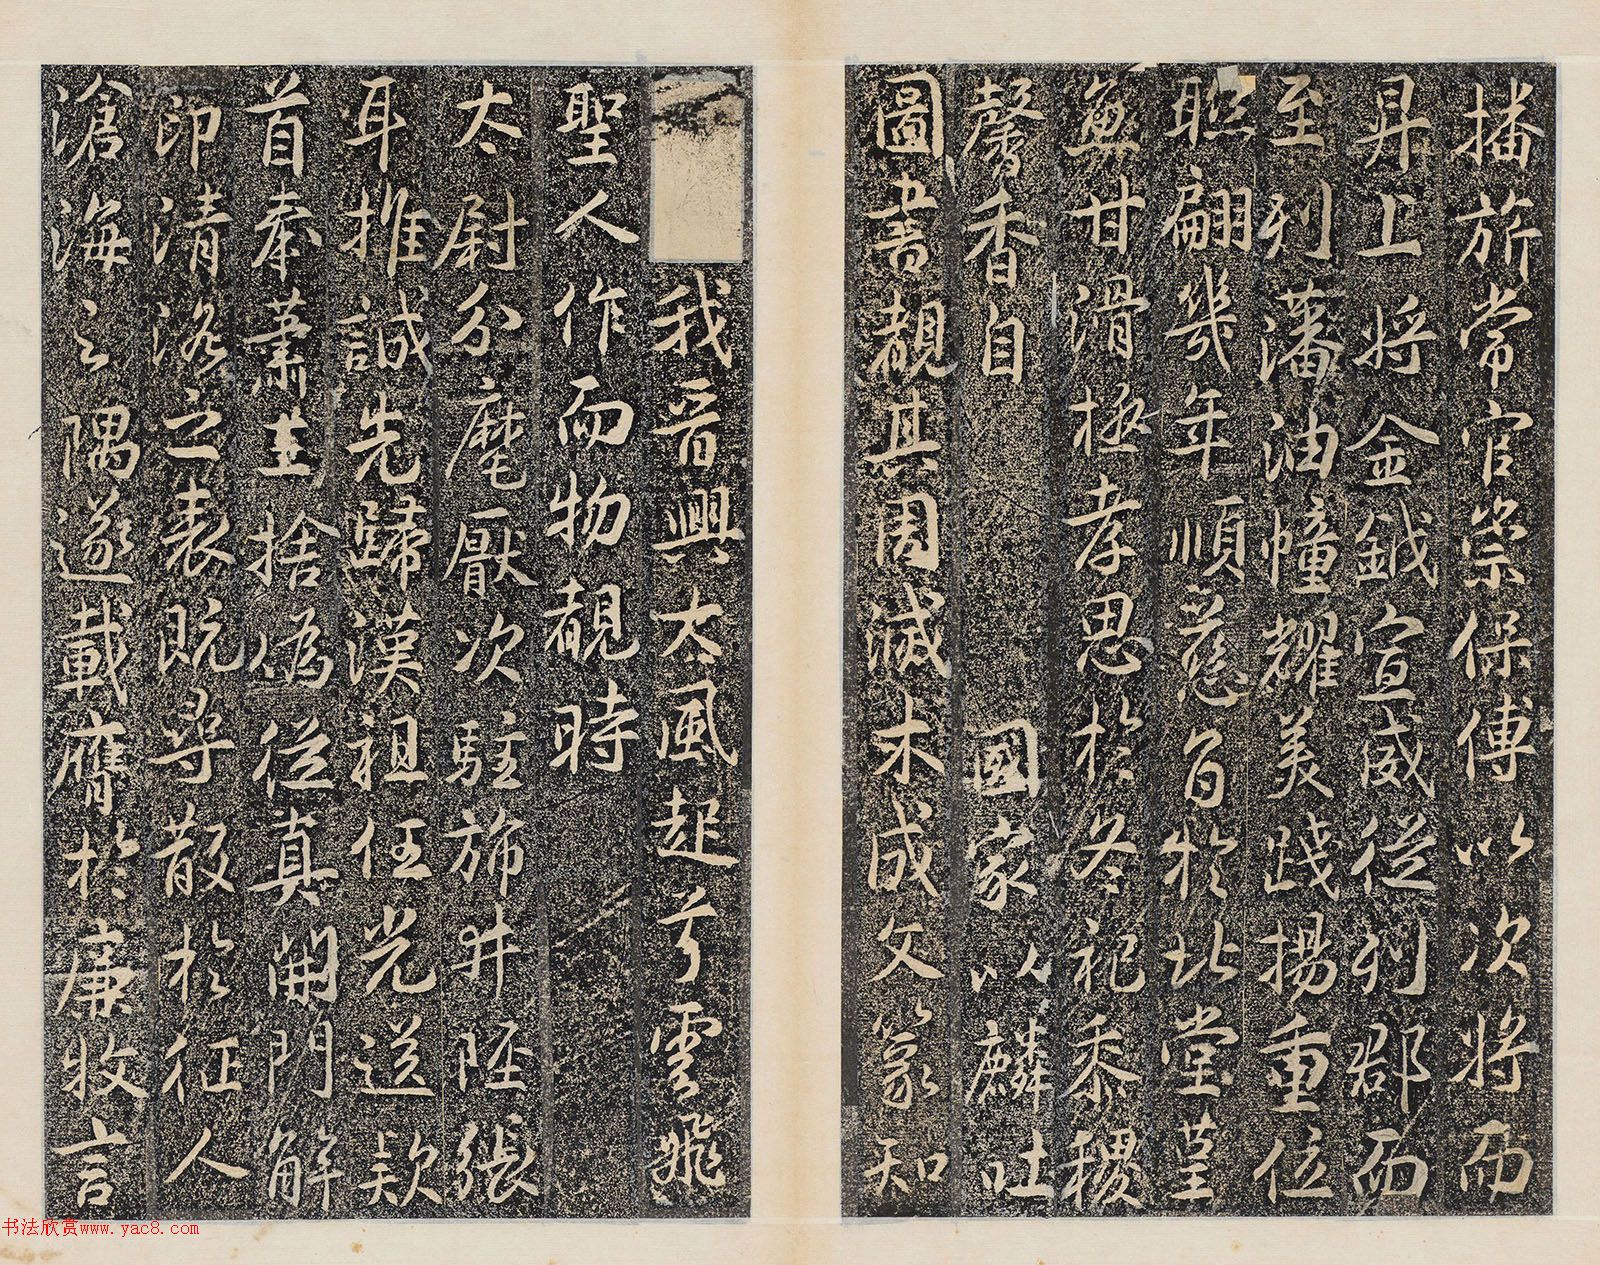 播旂常官崇保傅以次將而
昇上將金鉞宣威從列郡而
至列藩油幢耀美踐揚重位
聯翩幾年順慈旨於北堂堇
甘滑極孝思於冬祀黍稷
馨香自　國家以麟吐
圖書覩其因減木成文篆知
我晉興大風起兮雲飛
聖人作而物覩時
太尉分麾厭次駐斾井陘張
耳推誠先歸漢祖任光送款
首奉蕭王捨偽從真開門解
印清洺之表既尋散於征人
滄海之隅遂載膺於廉牧言
书法欣赏www.yac8.com